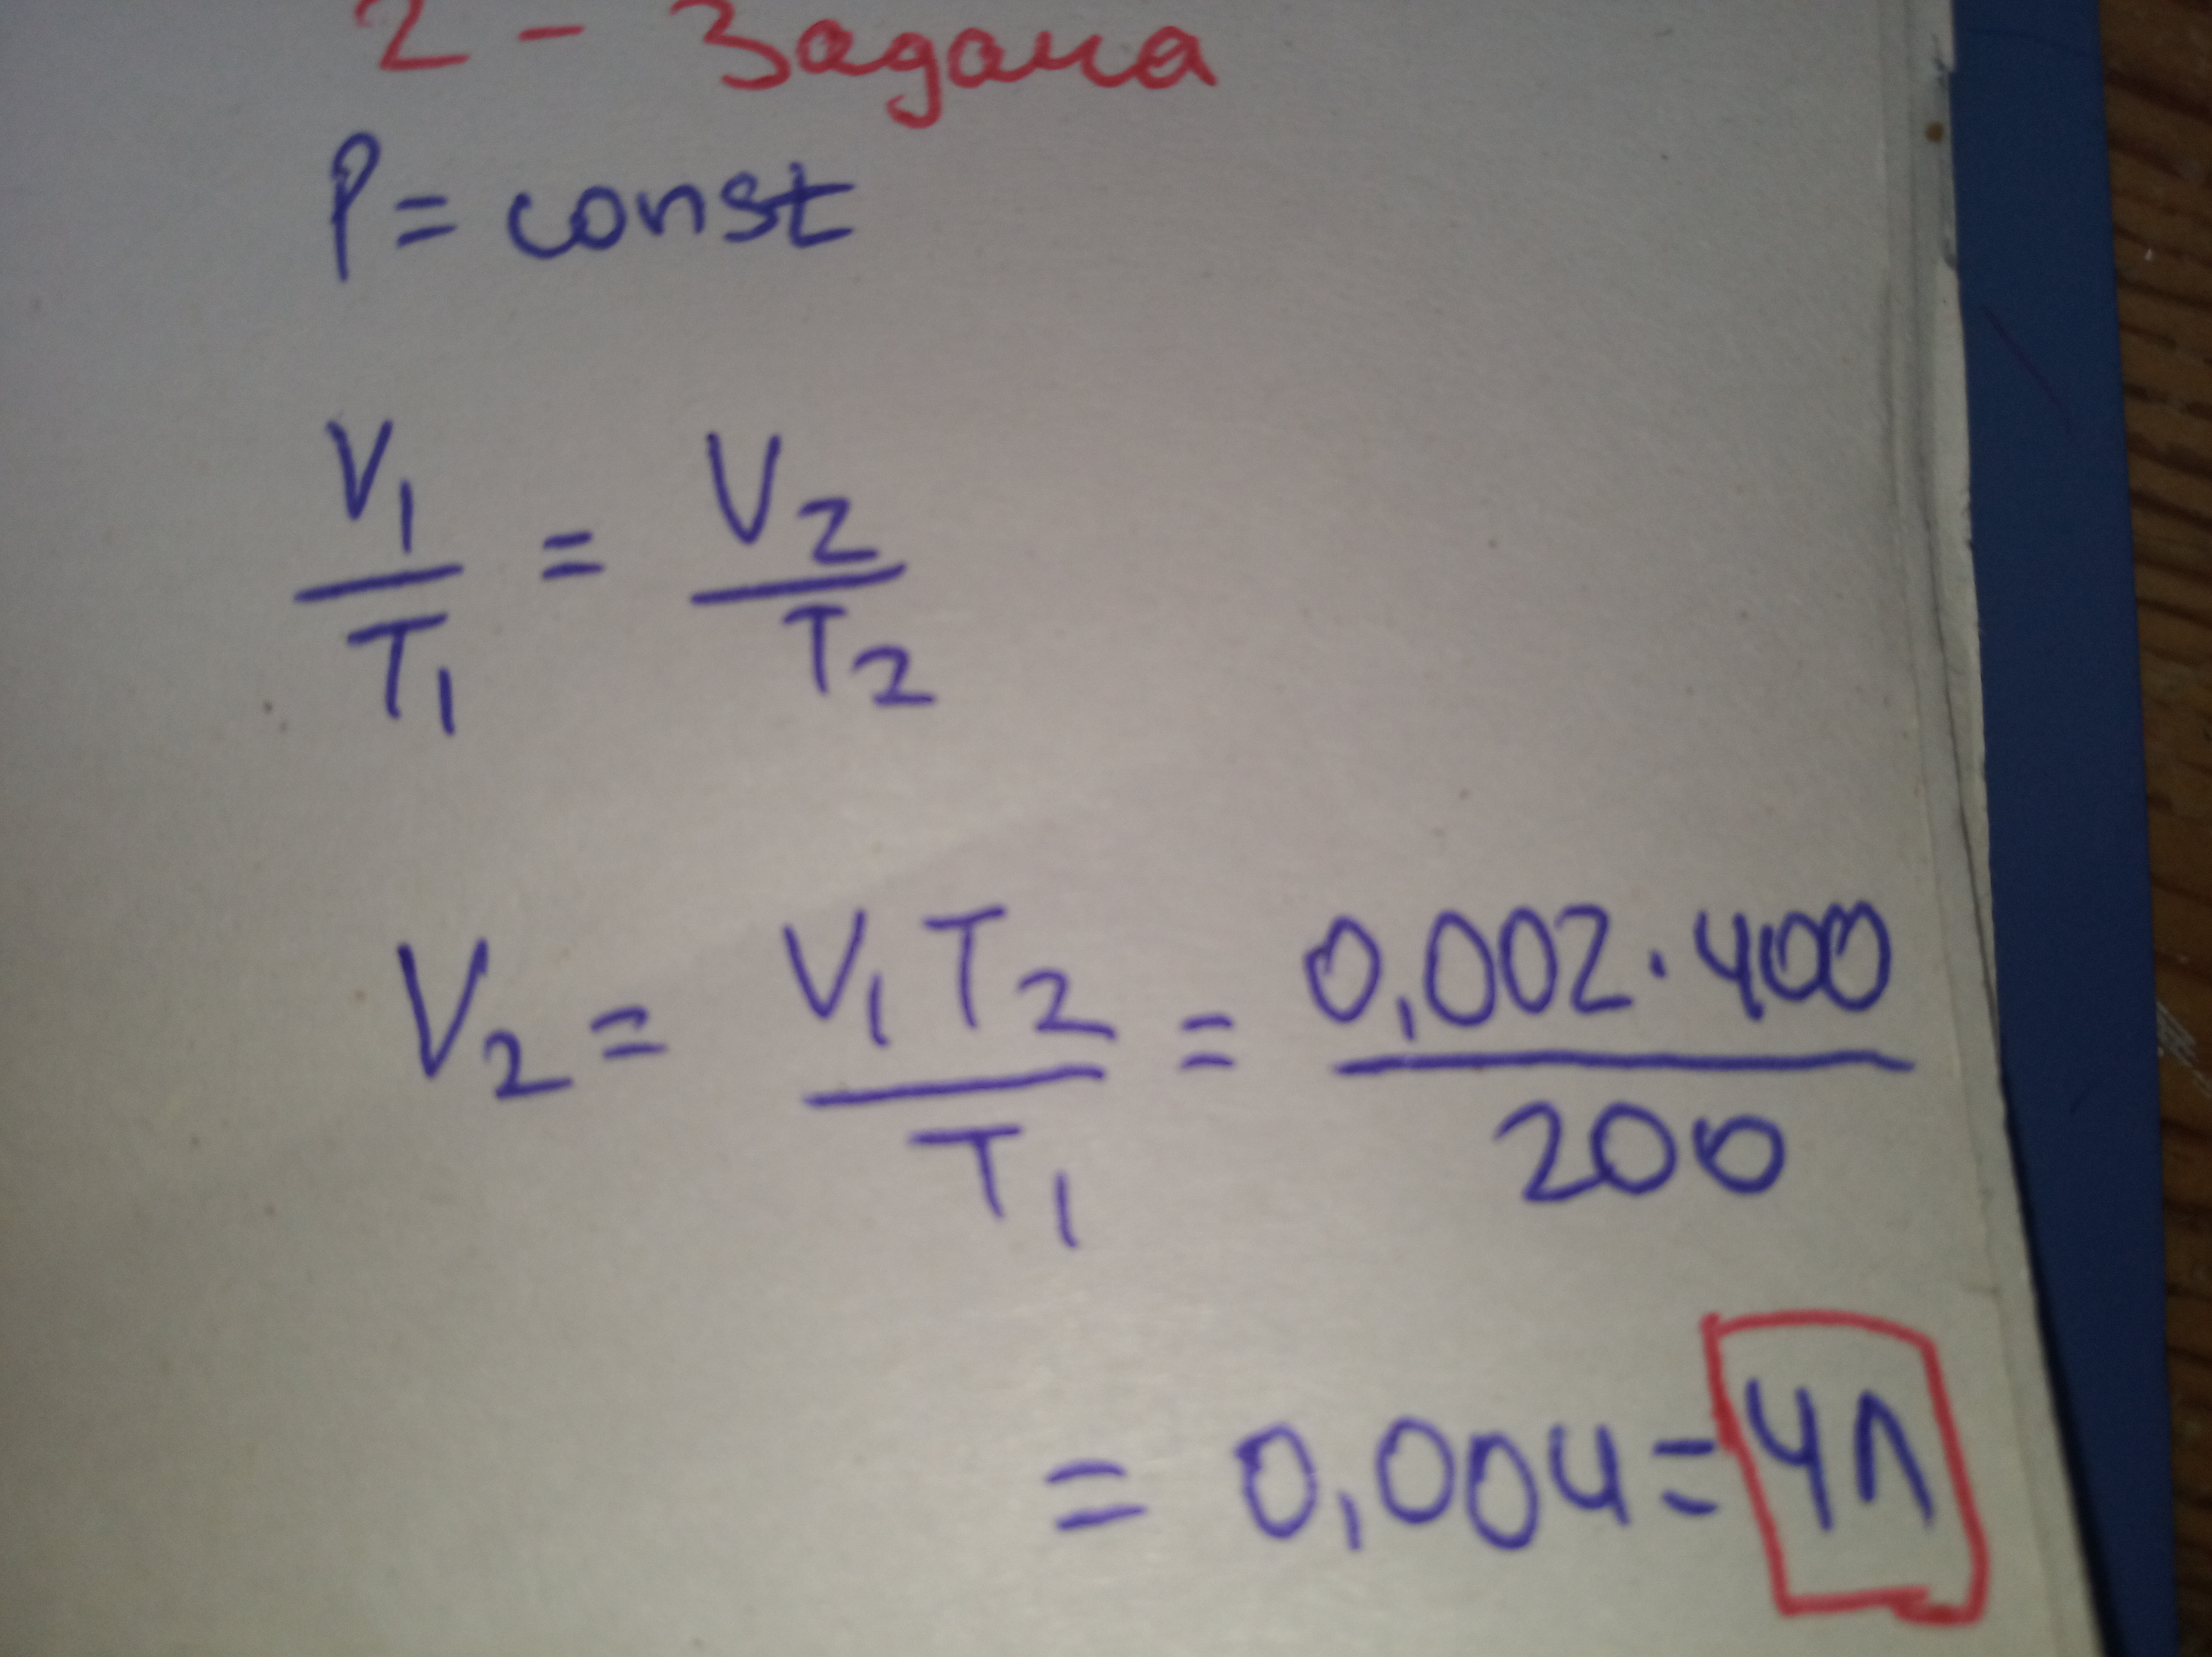 2 - Задача
P = const
V₁/T₁ = V₂/T₂
V₂ = V₁T₂/T₁ = 0,002·400/200
= 0,004 = 4л